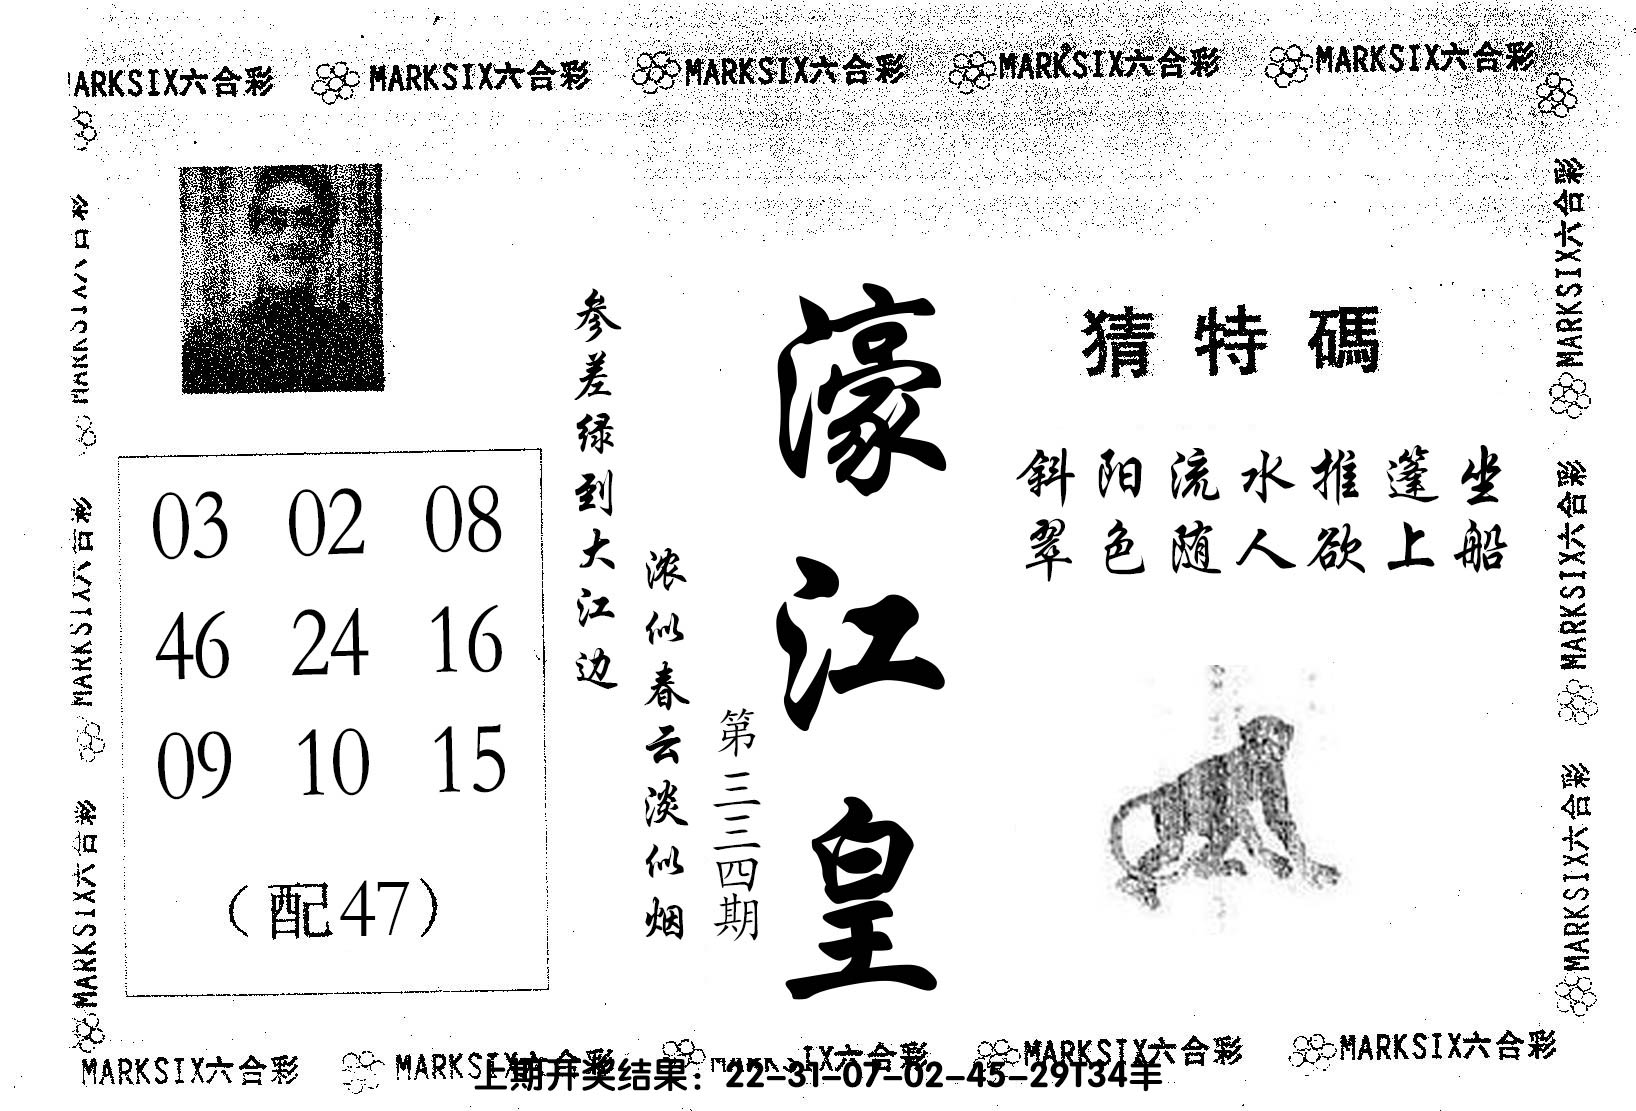 MARKSIX六合彩 MARKSIX六合彩 MARKSIX六合彩 MARKSIX六合彩 MARKSIX六合彩
猜特碼
斜阳流水推篷坐
翠色随人欲上船
濠江皇
第三三四期
参差绿到大江边
浓似春云淡似烟
03 02 08
46 24 16
09 10 15
（配47）
MARKSIX六合彩
MARKSIX六合彩
MARKSIX六合彩
MARKSIX六合彩
MARKSIX六合彩
MARKSIX六合彩
MARKSIX六合彩 MARKSIX六合彩 MARKSIX六合彩 MARKSIX六合彩
上期开奖结果：22-31-07-02-45-29T34羊